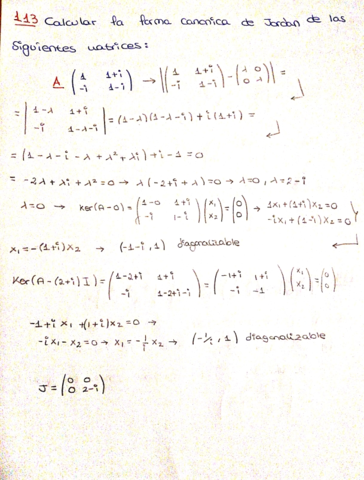 1.13 Calcular la forma canonica de Jordan de las
siguientes matrices:
A (1 1+i; -i 1-i) → |(1 1+i; -i 1-i) - (λ 0; 0 λ)| =
= |1-λ 1+i; -i 1-λ-i| = (1-λ)(1-λ-i) + i(1+i) =
= (1-λ-i-λ+λ²+λi) + i-1 = 0
= -2λ+λi+λ² = 0 → λ(-2+i+λ) = 0 → λ=0, λ=2-i
λ=0 → Ker(A-0) = (1-0 1+i; -i 1-i)(x₁; x₂) = (0; 0) → 1x₁+(1+i)x₂=0
-ix₁+(1-i)x₂=0
x₁=-(1+i)x₂ → (-1-i, 1) diagonalizable
Ker(A-(2+i)I) = (1-2+i 1+i; -i 1-2+i-i) = (-1+i 1+i; -i -1)(x₁; x₂) = (0; 0)
-1+i x₁ + (1+i)x₂ = 0 →
-ix₁-x₂=0 → x₁=-1/i x₂ → (-1/i, 1) diagonalizable
J = (0 0; 0 2-i)